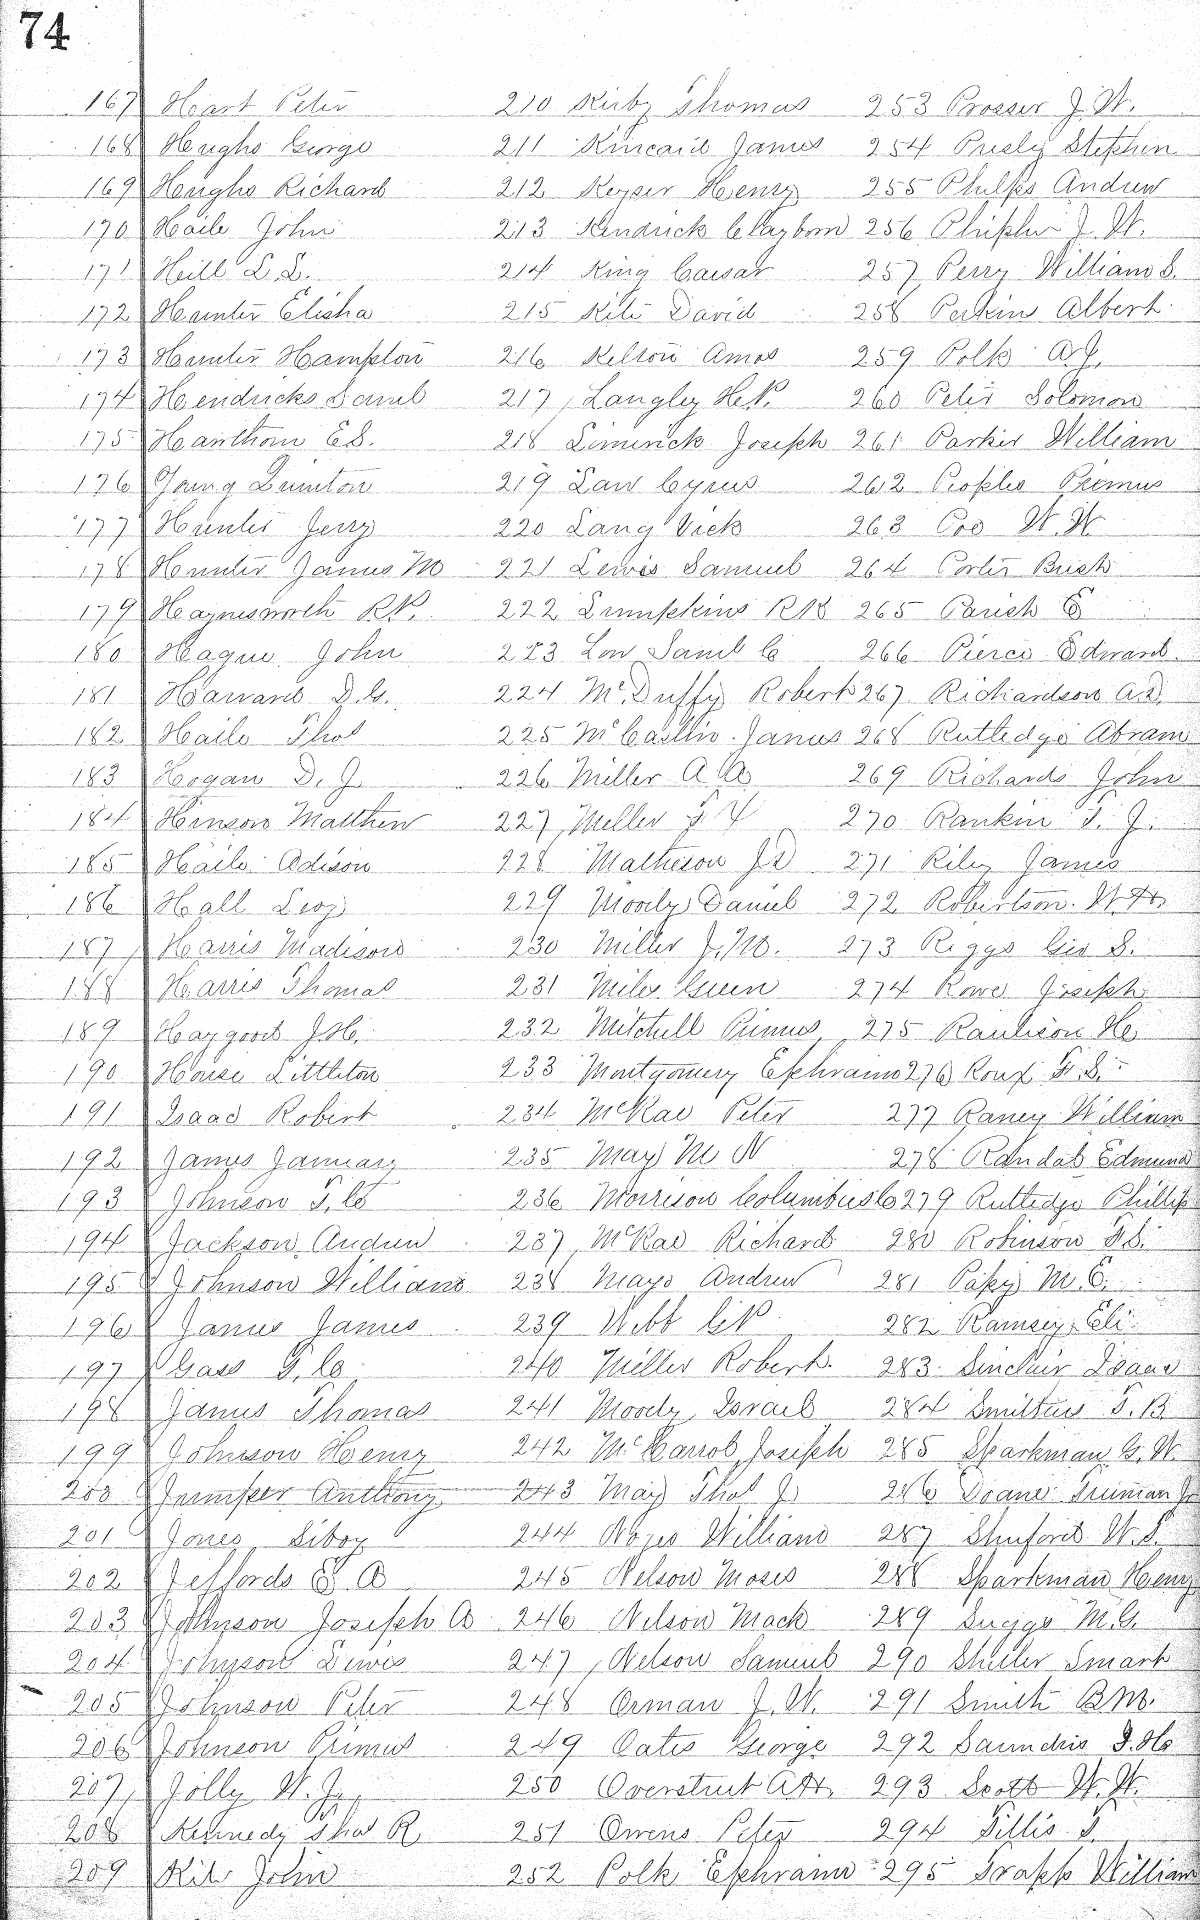 74
167 Hart Peter 210 Kirby Thomas 253 Prosser J. W.
168 Hughs George 211 Kincaid James 254 Presly Stephen
169 Hughs Richard 212 Keyser Henry 255 Phelps Andrew
170 Haile John 213 Kendrick Clayborn 256 Phipher J. W.
171 Hill L. L. 214 King Caesar 257 Perry William S.
172 Hunter Elisha 215 Kite David 258 Perkin Albert
173 Hunter Hampton 216 Kelton Amos 259 Polk A. J.
174 Hendricks Saml 217 Langley H. P. 260 Peter Solomon
175 Hawthorn E S. 218 Limerick Joseph 261 Parker William
176 Young Quinton 219 Law Cyrus 262 Peoples Primus
177 Hunter Jerry 220 Lang Vick 263 Poe W. W
178 Hunter James M 221 Lewis Samuel 264 Porter Bush
179 Haynesworth R. P. 222 Lumpkins R K 265 Parish E
180 Hague John 223 Low Saml C 266 Pierce Edward
181 Harvard D. G. 224 McDuffy Robert 267 Richardson A. D.
182 Haile Thos 225 McCaslin James 268 Rutledge Abram
183 Hogan D. J. 226 Miller A A 269 Richards John
184 Hinson Matthew 227 Miller T Y 270 Rankin T. J.
185 Haile Adison 228 Matheson J D 271 Riley James
186 Hall Levy 229 Moody Daniel 272 Robertson W. H.
187 Harris Madison 230 Miller J. M. 273 Riggs Geo S.
188 Harris Thomas 231 Miles Green 274 Rowe Joseph
189 Haygood J. H. 232 Mitchell Primus 275 Raulison H
190 House Littleton 233 Montgomery Ephraim 276 Roux F. S.
191 Isaac Robert 234 McRae Peter 277 Raney William
192 James January 235 May M N 278 Randal Edmund
193 Johnson T. C 236 Morrison Columbus C 279 Rutledge Phillip
194 Jackson Andrew 237 McRae Richard 280 Robinson F. S.
195 Johnson William 238 Mays Andrew 281 Papy M. E.
196 James James 239 Webb G P 282 Ramsey Eli
197 Gass T. C 240 Miller Robert 283 Sinclair Isaac
198 James Thomas 241 Moody Israel 284 T. B
199 Johnson Henry 242 McCarrol Joseph 285 Sparkman G. W.
200 Jumper Anthony 243 May Thos J 286 Doane Truman Jr
201 Jones Siboy 244 Noyes William 287 Shuford W. T.
202 Jeffords E A 245 Nelson Moses 288 Sparkman Henry
203 Johnson Joseph A 246 Nelson Mack 289 Suggs M. G.
204 Johnson Lewis 247 Nelson Samuel 290 Smart
205 Johnson Peter 248 Orman J. W. 291 Smith B M.
206 Johnson Primus 249 Oates George 292 Saunders J. H
207 Jolly W. J. 250 Overstreet A H. 293 Scott W. W.
208 Kennedy Thos R 251 Owens Peter 294 Tillis T
209 Kile John 252 Polk Ephraim 295 Trapp William